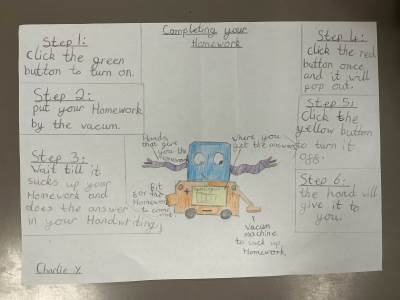 Completing your
Homework
Step 1:
Click the green
button to turn on.
Step 2:
put your Homework
by the vacum.
Step 3:
Wait till it
sucks up your
Homework and
does the answer
in your Handwriting.
Step 4:
click the red
button once
and it will
pop out.
Step 5:
Click the
yellow button
to turn it
off.
Step 6:
the hand will
give it to
you.
Hands
that give
you the
Homework
where you
get the answer
Homework
to come
out.
Vacum
machine
to suck up
Homework.
Charlie Y